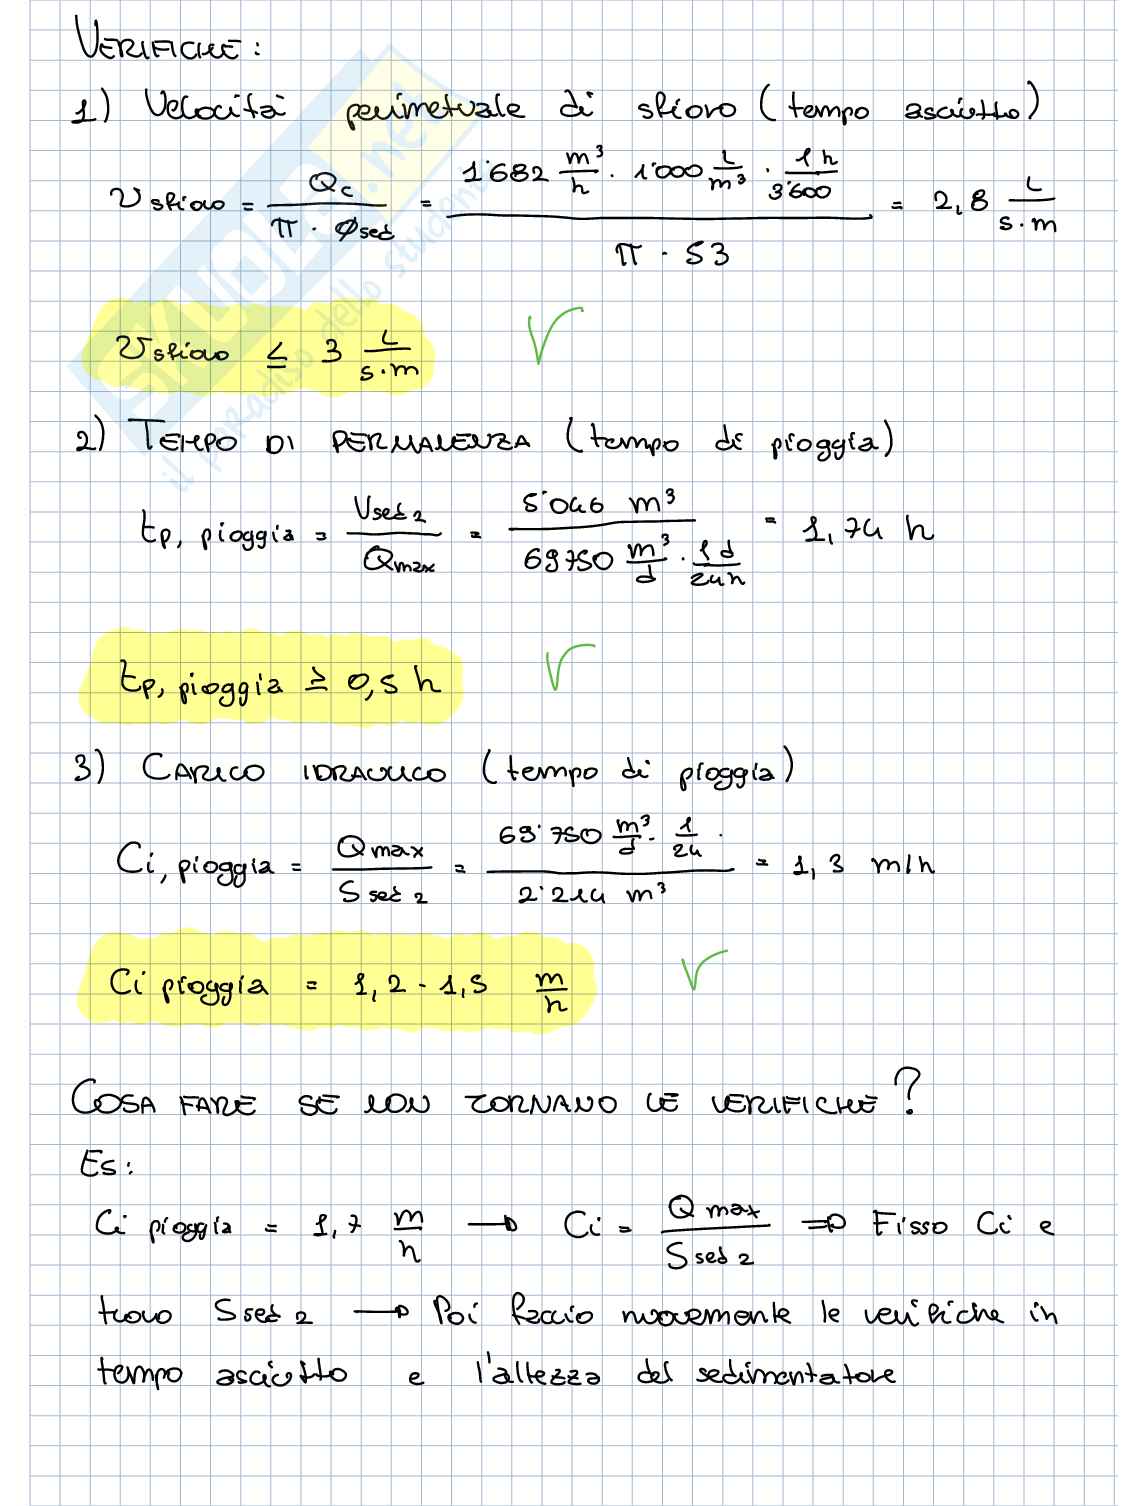 VERIFICHE:
1) Velocità perimetrale di sfioro (tempo asciutto)
v sfioro = Qc / (π · ϕsed) = (1'682 m³/h · 1'000 L/m³ · 1h/3'600) / (π · 53) = 2,8 L/(s·m)
v sfioro ≤ 3 L/(s·m) √
2) TEMPO DI PERMANENZA (tempo di pioggia)
tp, pioggia = Vsed 2 / Qmax = 5'046 m³ / (69750 m³/d · 1d/24h) = 1,74 h
tp, pioggia ≥ 0,5 h √
3) CARICO IDRAULICO (tempo di pioggia)
Ci, pioggia = Qmax / S sed 2 = (69'750 m³/d · 1/24 ·) / 2'214 m³ = 1,3 m/h
Ci pioggia = 1,2 - 1,5 m/h √
COSA FARE SE NON TORNANO LE VERIFICHE?
Es:
Ci pioggia = 1,7 m/h → Ci = Q max / S sed 2 ⇒ Fisso Ci e
trovo S sed 2 → Poi faccio nuovamente le verifiche in
tempo asciutto e l'altezza del sedimentatore
SKUOLA.net
il paradiso dello studente